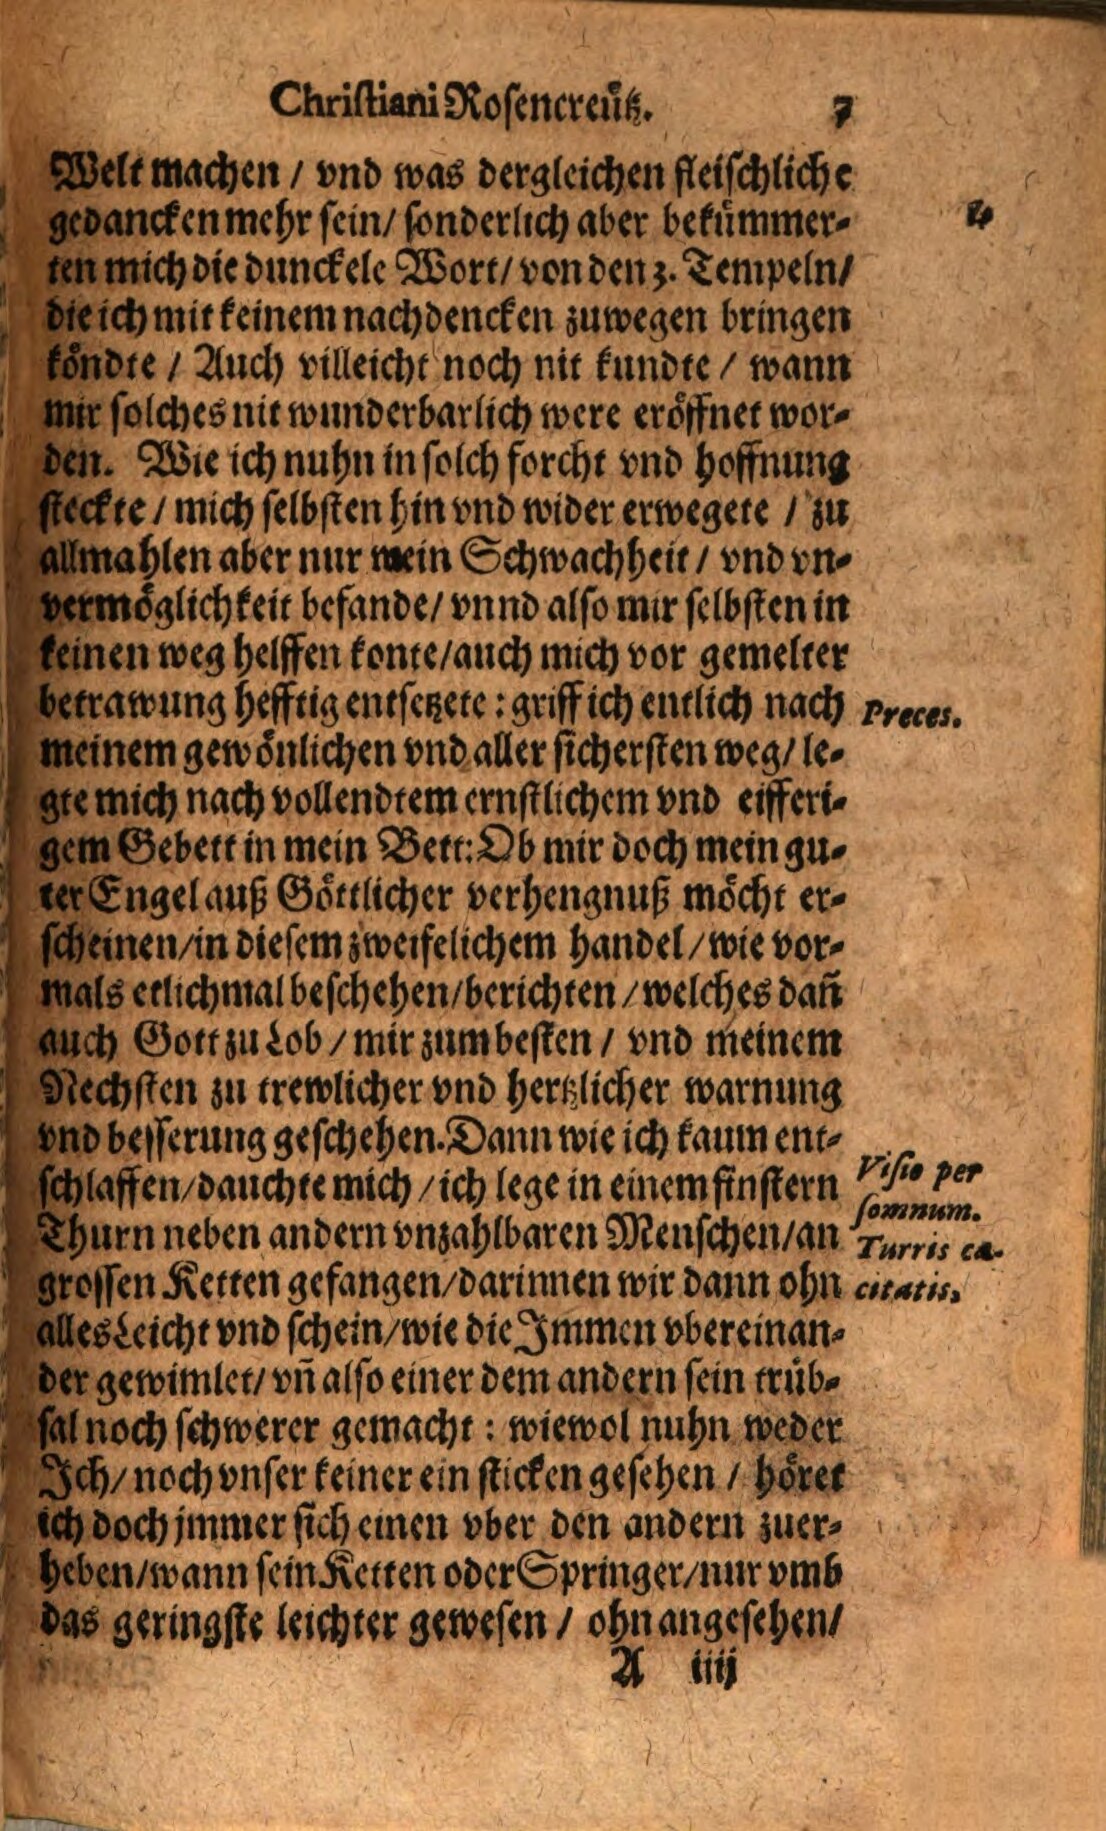 Christiani Rosencreütz. 7
Welt machen / vnd was dergleichen fleischliche
gedancken mehr sein / sonderlich aber bekümmer-
ten mich die dunckele Wort / von den 3. Tempeln /
die ich mit keinem nachdencken zuwegen bringen
köndte / Auch villeicht noch nit kundte / wann
mir solches nit wunderbarlich were eröffnet wor-
den. Wie ich nuhn in solch forcht vnd hoffnung
steckte / mich selbsten hin vnd wider erwegete / zu
allmahlen aber nur mein Schwachheit / vnd vn-
vermöglichkeit befande / vnnd also mir selbsten in
keinen weg helffen konte / auch mich vor gemelter
betrawung hefftig entsetzete : griff ich entlich nach
Preces.
meinem gewönlichen vnd aller sichersten weg / le-
gte mich nach vollendtem ernstlichem vnd eifferi-
gem Gebett in mein Bett: Ob mir doch mein gu-
ter Engel auß Göttlicher verhengnuß möcht er-
scheinen / in diesem zweifelichem handel / wie vor-
mals etlichmal beschehen / berichten / welches dañ
auch Gott zu Lob / mir zum besten / vnd meinem
Nechsten zu trewlicher vnd hertzlicher warnung
vnd besserung geschehen. Dann wie ich kaum ent-
schlaffen / dauchte mich / ich lege in einem finstern
Visio per
somnum.
Thurn neben andern vnzahlbaren Menschen / an
Turris cæ-
grossen Ketten gefangen / darinnen wir dann ohn
citatis.
alles Leicht vnd schein / wie die Immen vbereinan-
der gewimlet / vñ also einer dem andern sein trüb-
sal noch schwerer gemacht : wiewol nuhn weder
Ich / noch vnser keiner ein sticken gesehen / höret
ich doch jmmer sich einen vber den andern zuer-
heben / wann sein Ketten oder Springer / nur vmb
das geringste leichter gewesen / ohnangesehen /
A iiij